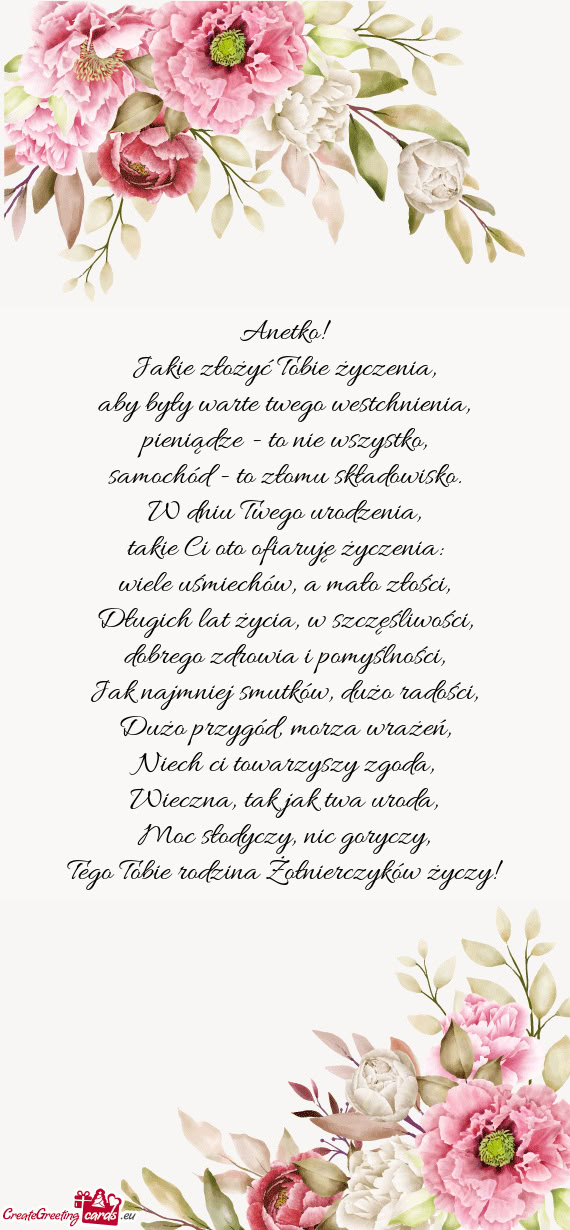 Anetko!
Jakie złożyć Tobie życzenia,
aby były warte twego westchnienia,
pieniądze - to nie wszystko,
samochód - to złomu składowisko.
W dniu Twego urodzenia,
takie Ci oto ofiaruję życzenia:
wiele uśmiechów, a mało złości,
Długich lat życia, w szczęśliwości,
dobrego zdrowia i pomyślności,
Jak najmniej smutków, dużo radości,
Dużo przygód, morza wrażeń,
Niech ci towarzyszy zgoda,
Wieczna, tak jak twa uroda,
Moc słodyczy, nic goryczy,
Tego Tobie rodzina Żołnierczyków życzy!
CreateGreeting cards .eu